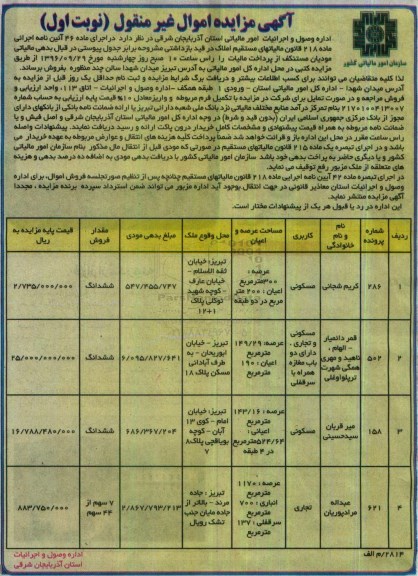 آگهی مزایده اموال غیر منقول (نوبت اول)
سازمان امور مالیاتی کشور
اداره وصول و اجرائیات امور مالیاتی استان آذربایجان شرقی در نظر دارد در اجرای ماده ۴۶ آئین نامه اجرائی
ماده ۲۱۸ قانون مالیاتهای مستقیم املاک در قید بازداشتی مشروحه برابر جدول پیوستی در قبال بدهی مالیاتی
مودیان مستنکف از پرداخت مالیات را راس ساعت ۱۰ صبح روز چهارشنبه مورخ ۱۳۹۶/۰۹/۲۹ از طریق
مزایده کتبی در محل اداره کل امور مالیاتی به آدرس تبریز میدان شهدا سالن چند منظوره بفروش برساند.
لذا کلیه متقاضیان می توانند برای کسب اطلاعات بیشتر و دریافت برگ شرایط مزایده و ثبت نام حداقل یک روز قبل از مزایده به
آدرس میدان شهدا - اداره کل امور مالیاتی استان - ورودی ۱ طبقه همکف - اداره وصول و اجرائیات - اتاق ۱۱۳، واحد ارزیابی و
فروش مراجعه و در صورت تمایل برای شرکت در مزایده با تکمیل فرم مربوطه و واریز معادل ۱۰٪ قیمت پایه ارزیابی به حساب شماره
۲۱۷۱۰۰۰۴۱۳۰۰۷ بنام تمرکز درآمد منابع مختلف مالیاتی نزد بانک ملی شعبه دارائی تبریز یا ارائه ضمانت نامه بانکی از بانکهای دارای
مجوز از بانک مرکزی جمهوری اسلامی ایران (بدون قید و شرط) در وجه اداره کل امور مالیاتی استان آذربایجان شرقی و اصل فیش و یا
ضمانت نامه مربوطه به همراه قیمت پیشنهادی و مشخصات کامل خریدار درون پاکت ارائه و رسید دریافت نمایند. پیشنهادات واصله
راس ساعت مقرر در محل این اداره باز و قرائت خواهد شد ضمنا پرداخت کلیه هزینه های انتقال و عوارض مربوطه به عهده خریدار می
باشد و در اجرای تبصره یک ماده ۲۱۵ قانون مالیاتهای مستقیم در صورتی که مودی قبل از انتقال مال مذکور بنام سازمان امور مالیاتی
کشور و یا دیگری حاضر به پرداخت بدهی خود باشد سازمان امور مالیاتی کشور با دریافت بدهی مودی به اضافه ده درصد بدهی و هزینه
های متعلقه از ملک مزبور رفع توقیف می نماید.
در اجرای تبصره ماده ۴۲ آیین نامه اجرایی ماده ۲۱۸ قانون مالیاتهای مستقیم چنانچه پس از تنظیم صورتجلسه فروش اموال، برای اداره
وصول و اجرائیات استان معاذیر قانونی در جهت انتقال بوجود آید اداره مزبور می تواند ضمن استرداد سپرده برنده مزایده، مجددا
آگهی مزایده منتشر نماید.
این اداره در رد یا قبول هر یک از پیشنهادات مختار است.
ردیف | شماره پرونده | نام و نام خانوادگی | کاربری | مساحت عرصه و اعیان | محل وقوع ملک | مبلغ بدهی مودی | مقدار فروش | قیمت پایه مزایده به ریال
۱ | ۲۸۶ | کریم شجاعی | مسکونی | عرصه : ۳۰۰مترمربع اعیان : ۲۰۰ متر مربع در دو طبقه | تبریز: خیابان ثقه الاسلام - خیابان عارف - کوچه شهید توکلی پلاک ۱۲+۱ | ۵۴۷/۴۵۵/۷۴۷ | ششدانگ | ۲/۷۳۵/۰۰۰/۰۰۰
۲ | ۵۰۲ | قمر دادمیار - الهام ، ناهید و مهری همگی شهرت تریلواوغلی | مسکونی و تجاری . دارای دو باب مغازه همراه با سرقفلی | عرصه : ۱۴۹/۲۹ مترمربع اعیان : ۱۹۰ مترمربع | تبریز - خیابان ابوریحان - به طرف آبادانی مسکن پلاک ۱۸ | ۶/۰۹۵/۸۲۷/۶۴۱ | ششدانگ | ۲۵/۰۰۰/۰۰۰/۰۰۰
۳ | ۱۵۸ | میر قربان سیدحسینی | مسکونی | عرصه: ۱۴۳/۱۶ مترمربع اعیانی : ۵۲۴/۶۴مترمربع در ۴ طبقه | تبریز: خیابان امام - کوی ۱۳ آبان - کوچه بویاقچی پلاک۸ ۷ | ۶۸۶/۳۶۷/۲۰۴ | ششدانگ | ۱۶/۷۸۸/۴۸۰/۰۰۰
۴ | ۶۲۱ | عبداله مرادپوریان | تجاری | عرصه : ۱۱۷۰ انباری : ۷۰۰ مترمربع سرقفلی : ۱۳۷ مترمربع | تبریز : جاده مرند - بالاتر از جاده مایان جنب تشک رویال | ۲/۸۶۷/۷۹۳/۲۱۳ | ۷ سهم از ۴۴ سهم | ۸۸۳/۷۵۰/۰۰۰
۲۸۱۴/م الف
اداره وصول و اجرائیات
استان آذربایجان شرقی